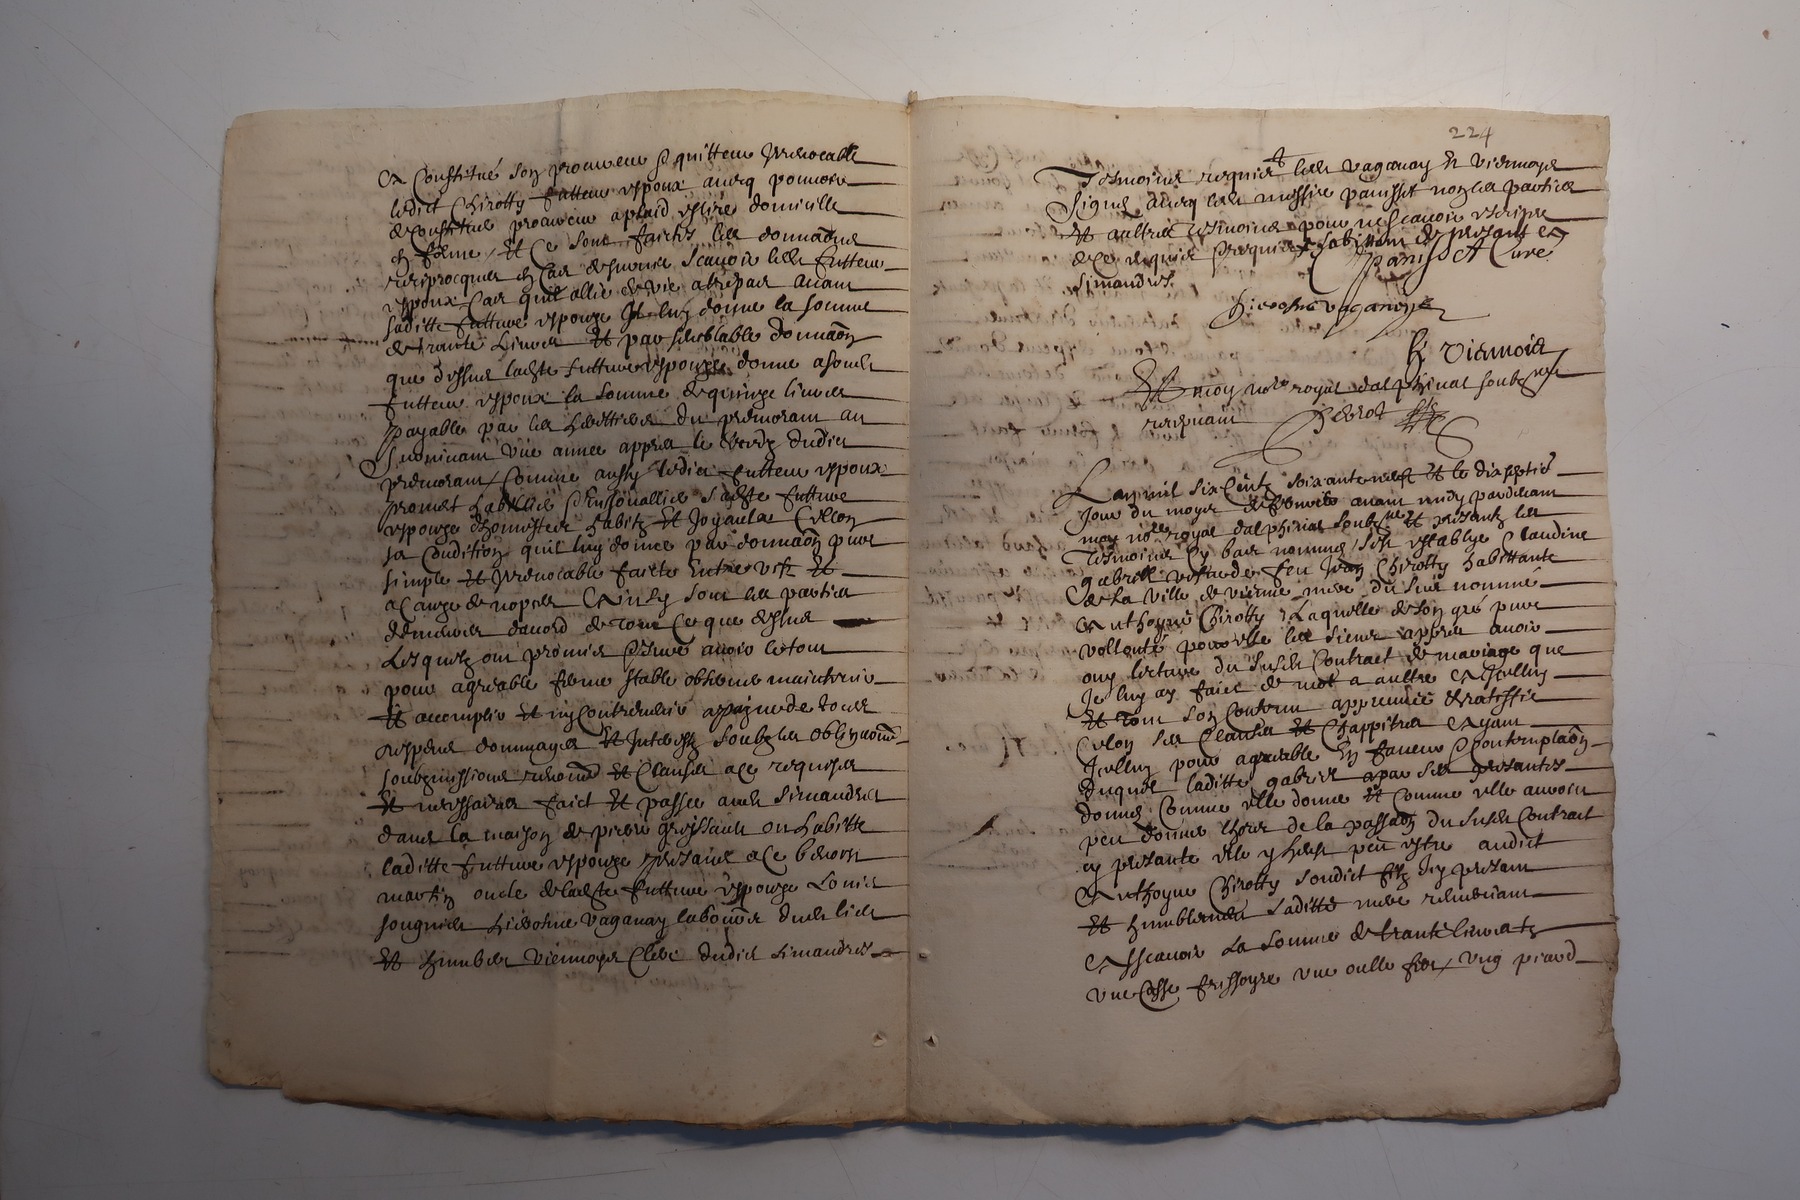 Et Constitué son procureur & quitteur Irrevocable
ledict Chirotty futteur espoux avecq pouvoir
de Constitué procureur a plaid eslire domicille
en forme, Et Ce sont faictz les donnaōns
reciprocques en Cas de survie Scavoir ledt futteur
espoux Cas quil allie de vie a trepas avant
laditte futture espouze Il luy donne la somme
de trante Livres Et par semblable donnaōn
que dessus ladte futture espouze donne a sondt
futteur espoux la somme de quinze livres
payable par les herittiers du premorant au
survivant une annee apprès le decedz dudict
premorant, Comme aussy ledict futteur espoux
promet habillié ladte futture
espouze d'honnestes habitz Et Joyaulx sellon
sa Condition quil luy donne par donnaōn pure
simple Et Irrevocable faicte Entre vifz Et
a Cauze de nopces Ainsy sont les parties
demeurées d'acord de tout Ce que dessus
Lesquelz ont promis avoir le tout
pour agreable ferme stable observé maintenir
Et accomplir Et ny Contrevenir a payne de tous
despens dommages Et Interestz soubz les obligaōns
soubzmissions renon Et Clauses a ce requises
Et necessaires faict Et passé audt Simandres
dans la maison de pierre ou habitte
laditte futture espouze presants a Ce
martin oncle de ladte futture espouze Louis
Vaganay laboureur dudt lieu
Et humbert viennoys Clerc dudict Simandres
224
Tesmoins requis lesdt vaganay Et viennoys
signés avecq ledt messire panisset non les parties
Et aultres tesmoins pour ne scavoir escripre
de Ce requis
Simandres.
Panisset Curé
vaganay
h viennois
Et moy nore royal dalphinal soubzne
recepvant Perrot
L'an mil six Centz soixante Et le dix septie
Jour du moys de avant midy pardevant
moy nore royal dalphinal soubzne Et presentz les
tesmoins Cy bas nommés, sest establye Claudine
gabriel vefve de feu Jean Chirotty habittante
de la ville de vienne mere du sus nommé
Anthoyne Chirotty, Laquelle de son gré pure
vollonté pour elle les siens apprès avoir
ouy lecture du susdt Contract de mariage que
Je luy ay faict de mot a aultre Et Icelluy
Et tout son Contenu appreuvé & ratiffié
sellon ses Clauses Et Chappitres Ayant
Icelluy pour agreable En faveur & Contemplaōn
duquel laditte gabriel a par ses presantes
donné Comme elle donne Et Comme elle auroit
peu donner lhors de la passaōn du susdt Contract
sy presante elle y heust peu estre audict
Anthoyne Chirotty sondict filz Icy presant
Et humblement laditte mere remerciant
Asscavoir La somme de trante livres tz
une Casse frissoyre une oulle fer, ung picard